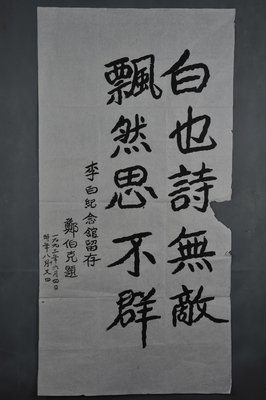 白也詩無敵
飄然思不群
李白紀念館留存
鄭伯克題
一九九二年六月四日
時年八月又四